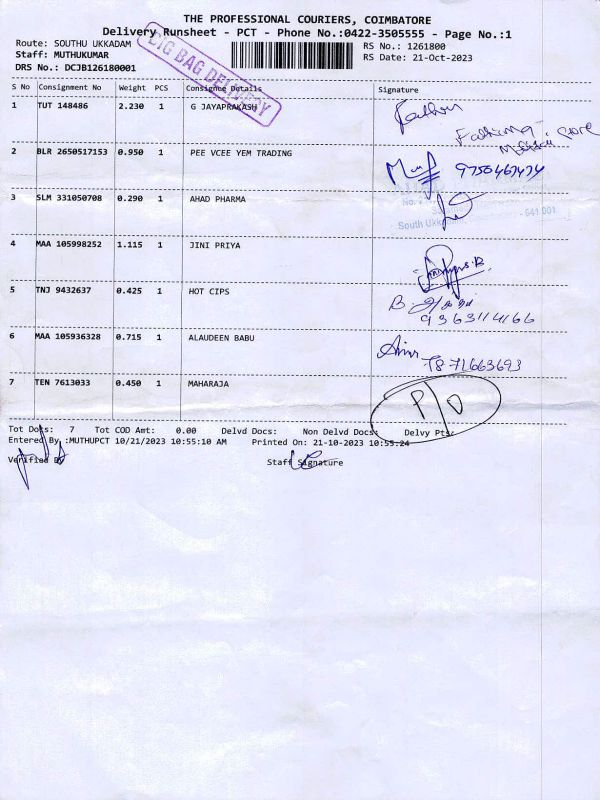 THE PROFESSIONAL COURIERS, COIMBATORE
Delivery Runsheet - PCT - Phone No.:0422-3505555 - Page No.:1
Route: SOUTHU UKKADAM
RS No.: 1261800
Staff: MUTHUKUMAR
RS Date: 21-Oct-2023
DRS No.: DCJB126180001
BIG BAG DELIVERY
S No Consignment No Weight PCS Consignee Details Signature
1 TUT 148486 2.230 1 G JAYAPRAKASH
Fathima
2 BLR 2650517153 0.950 1 PEE VCEE YEM TRADING
9750467474
3 SLM 331050708 0.290 1 AHAD PHARMA
No.
South Ukk - 641 001
4 MAA 105998252 1.115 1 JINI PRIYA
5 TNJ 9432637 0.425 1 HOT CIPS
B.
9363114166
6 MAA 105936328 0.715 1 ALAUDEEN BABU
7871663693
7 TEN 7613033 0.450 1 MAHARAJA
P/D
Tot Docs: 7 Tot COD Amt: 0.00 Delvd Docs: Non Delvd Docs: Delvy Pts:
Entered By :MUTHUPCT 10/21/2023 10:55:10 AM Printed On: 21-10-2023 10:55:24
Verified By Staff Signature